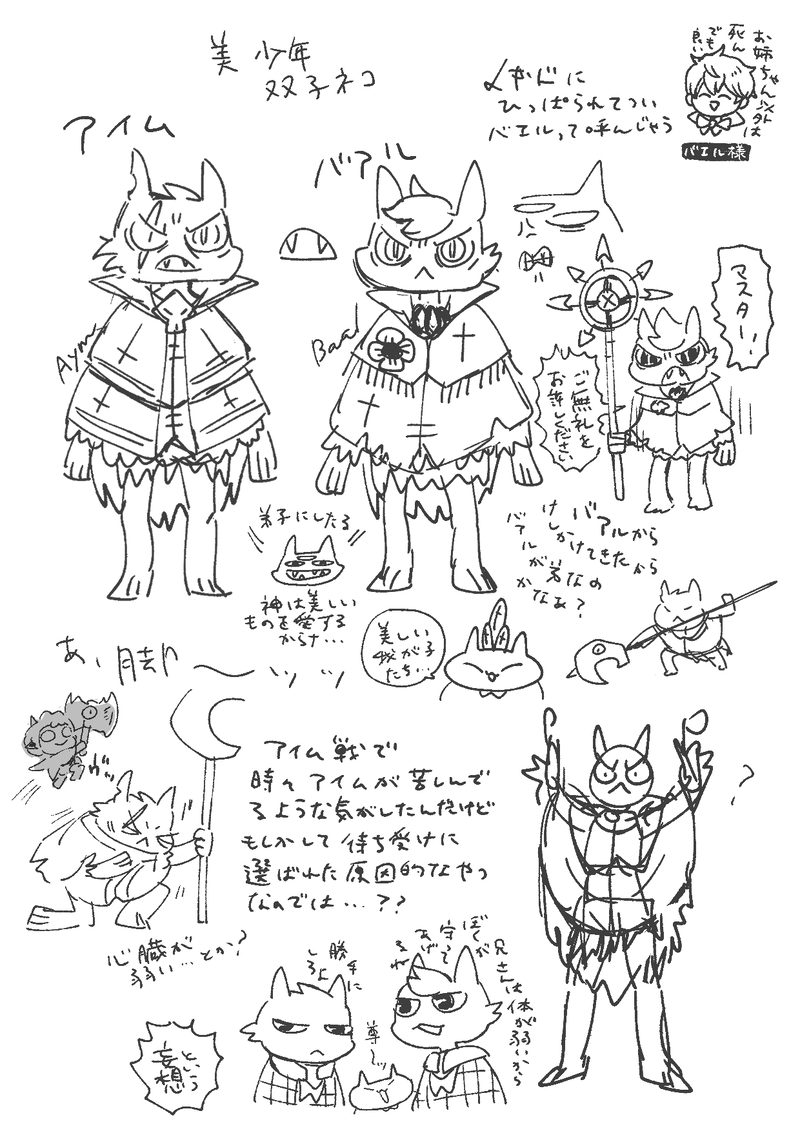 美少年
双子ネコ
アイム
バアル
メギドに
ひっぱられてつい
バエルって呼んじゃう
お姉ちゃん以外は
死んでも
良い
バエル様
Aym
Baal
マスター!
ご無礼を
お許しください
バアルから
けしかけてきたから
バアルが弟なの
かなあ?
弟子にしたる
神は美しい
ものを愛する
からナ…
美しい
我が子
たち…
あ、脚〜ッッ
ガッ
アイム戦で
時々アイムが苦しんで
るような気がしたんだけど
もしかして待ち受けに
選ばれた原因的なやつ
なのでは…??
心臓が
弱い…とか?
?
兄さんは体が弱いから
ぼくが
守って
あげる
勝手に
しろよ
尊〜ッ
という
妄想